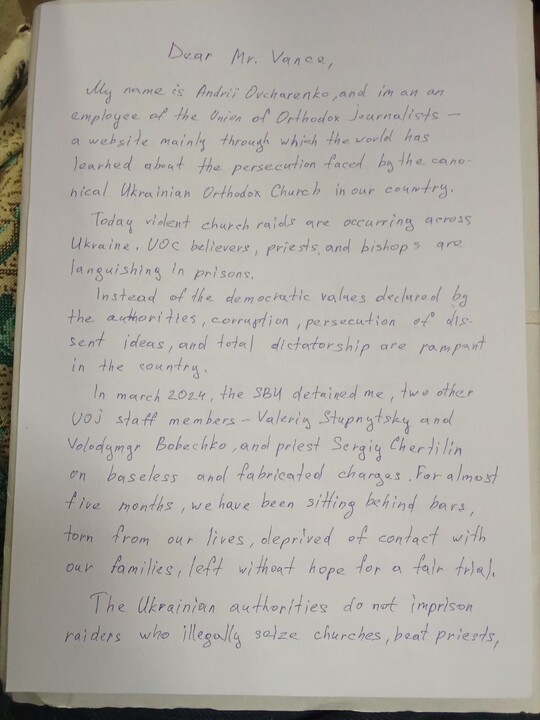 Dear Mr. Vance,
My name is Andrii Ovcharenko, and im an an
employee of the Union of Orthodox Journalists —
a website mainly through which the world has
learned about the persecution faced by the cano-
nical Ukrainian Orthodox Church in our country.
Today violent church raids are occurring across
Ukraine. UOC believers, priests, and bishops are
languishing in prisons.
Instead of the democratic values declared by
the authorities, corruption, persecution of dis-
sent ideas, and total dictatorship are rampant
in the country.
In march 2024, the SBU detained me, two other
UOJ staff members – Valeriy Stupnytsky and
Volodymyr Bobechko, and priest Sergiy Chertilin
on baseless and fabricated charges. For almost
five months, we have been sitting behind bars,
torn from our lives, deprived of contact with
our families, left without hope for a fair trial.
The Ukrainian authorities do not imprison
raiders who illegally seize churches, beat priests,